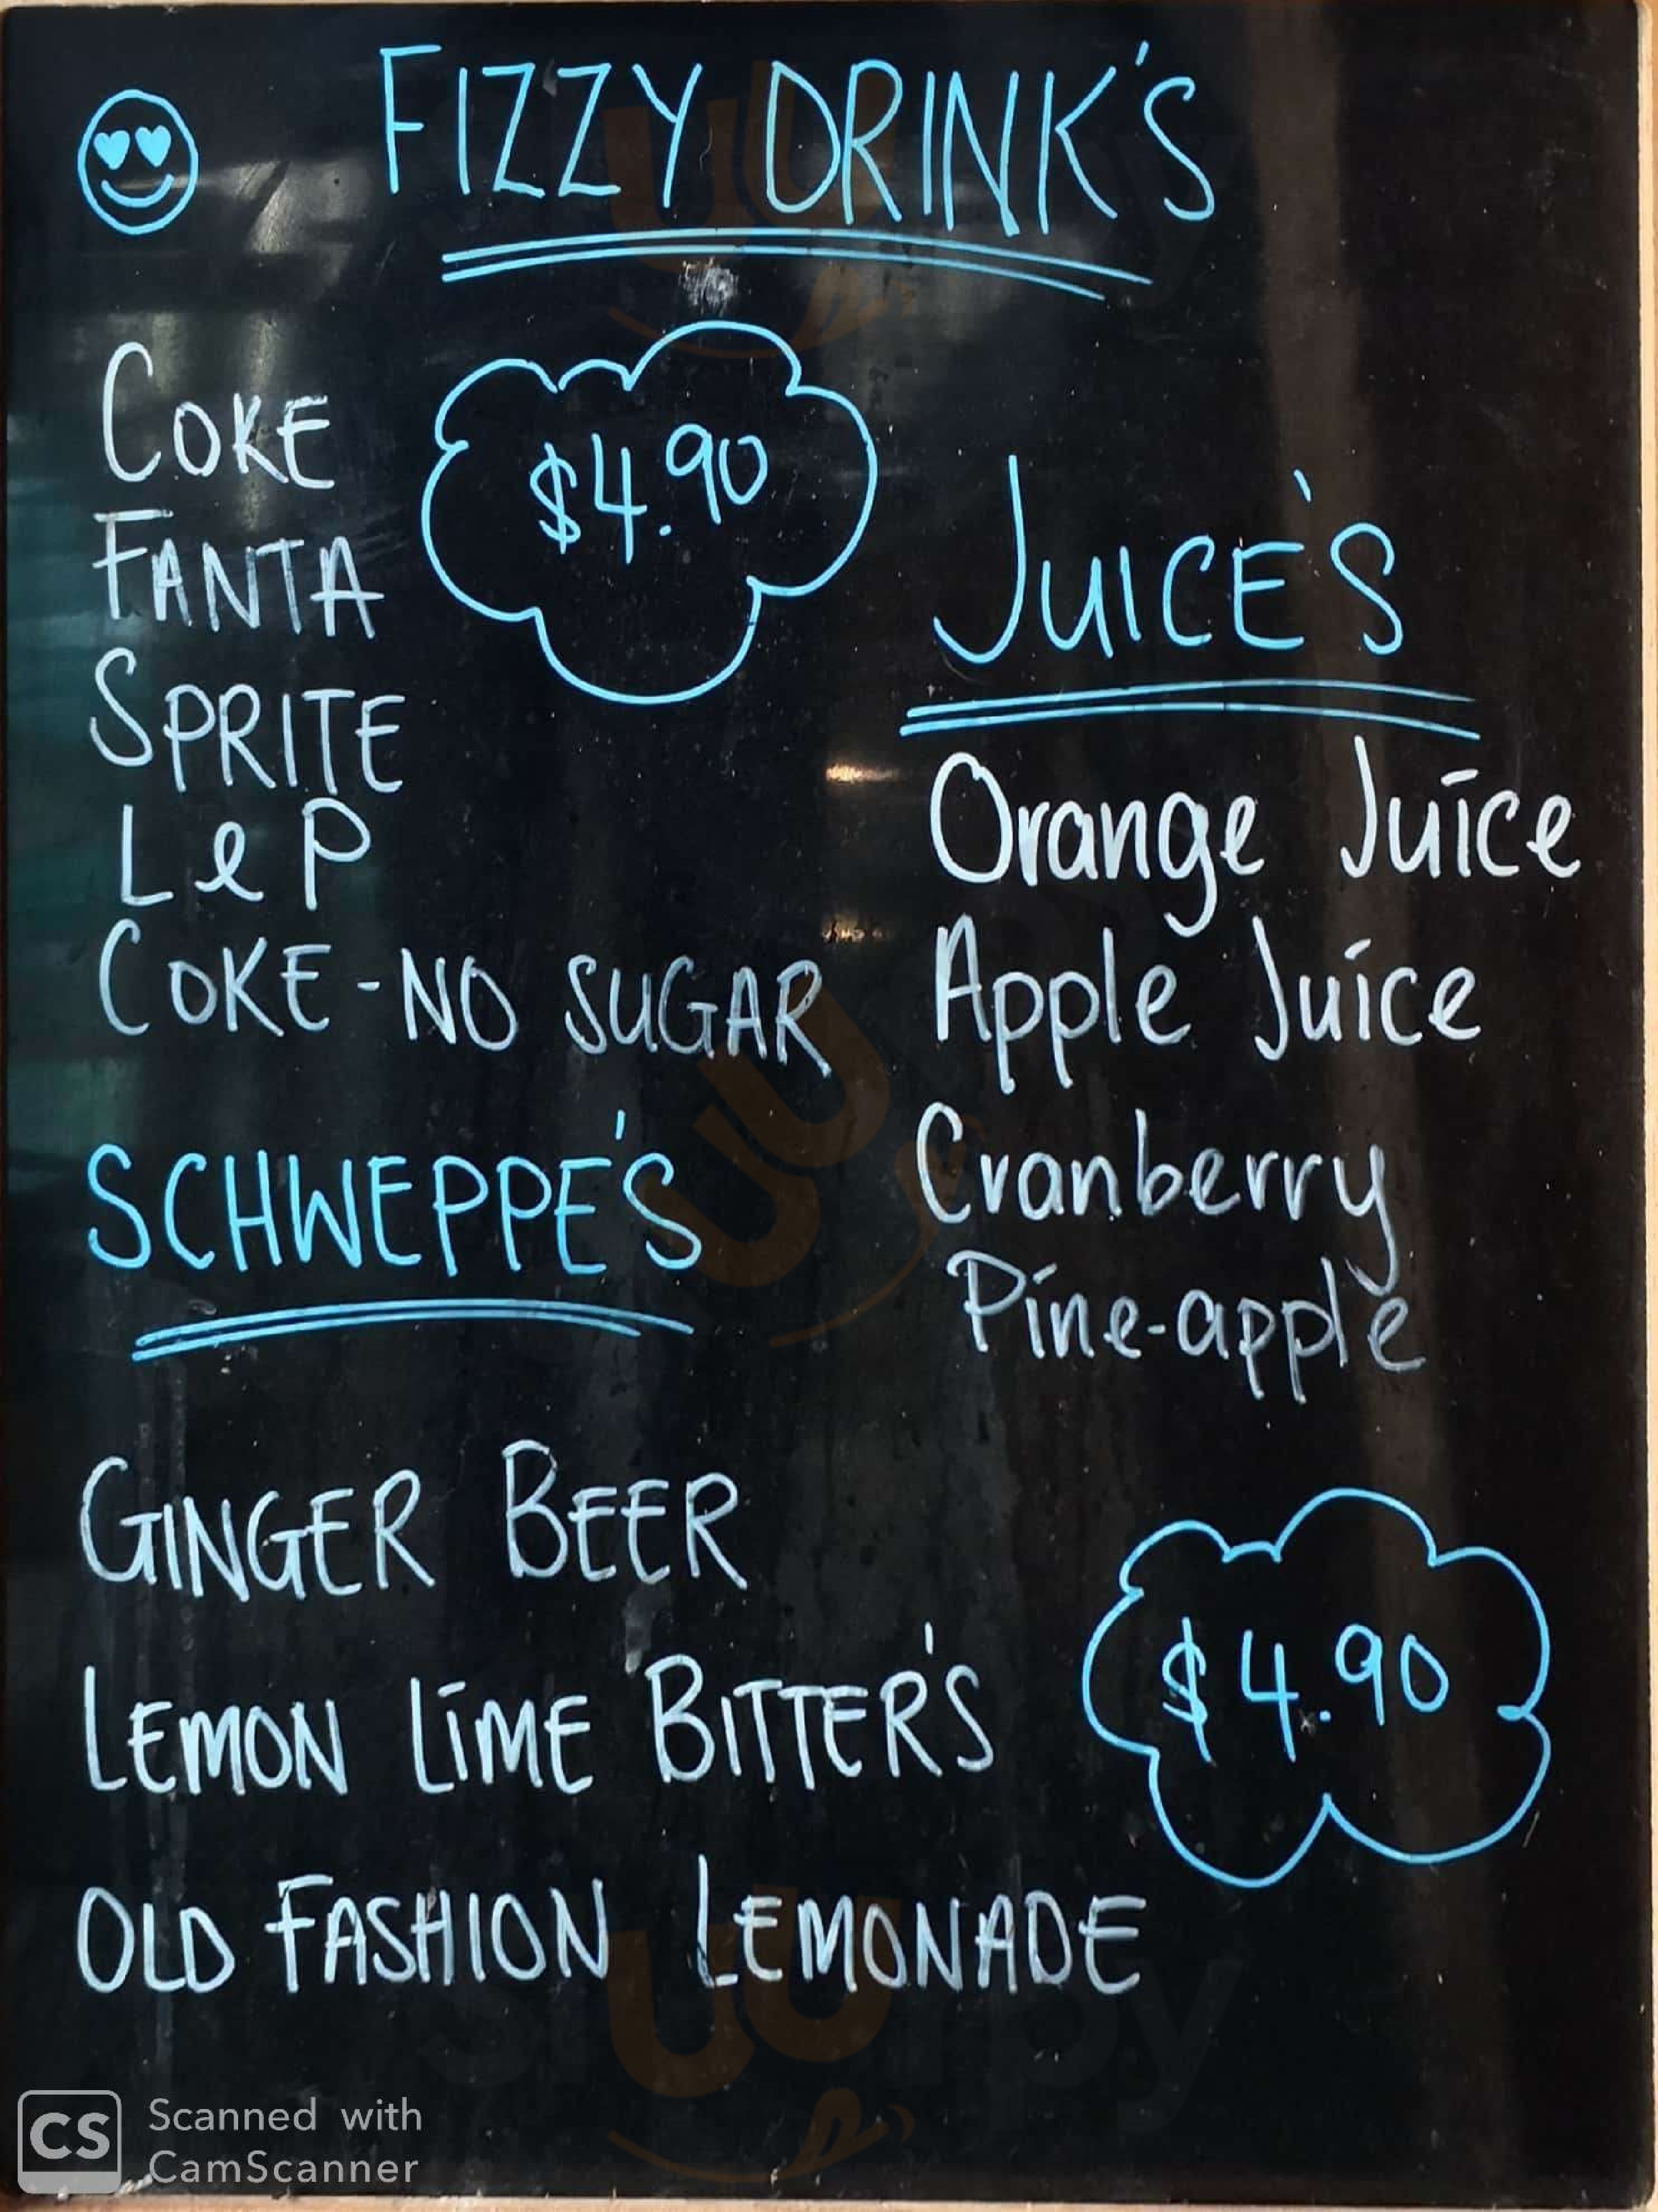 FIZZY DRINK'S
COKE
$4.90
FANTA
SPRITE
L & P
COKE - NO SUGAR
JUICE'S
Orange Juice
Apple Juice
Cranberry
Pine-apple
SCHWEPPE'S
GINGER BEER
LEMON LIME BITTER'S
OLD FASHION LEMONADE
$4.90
CS Scanned with
CamScanner